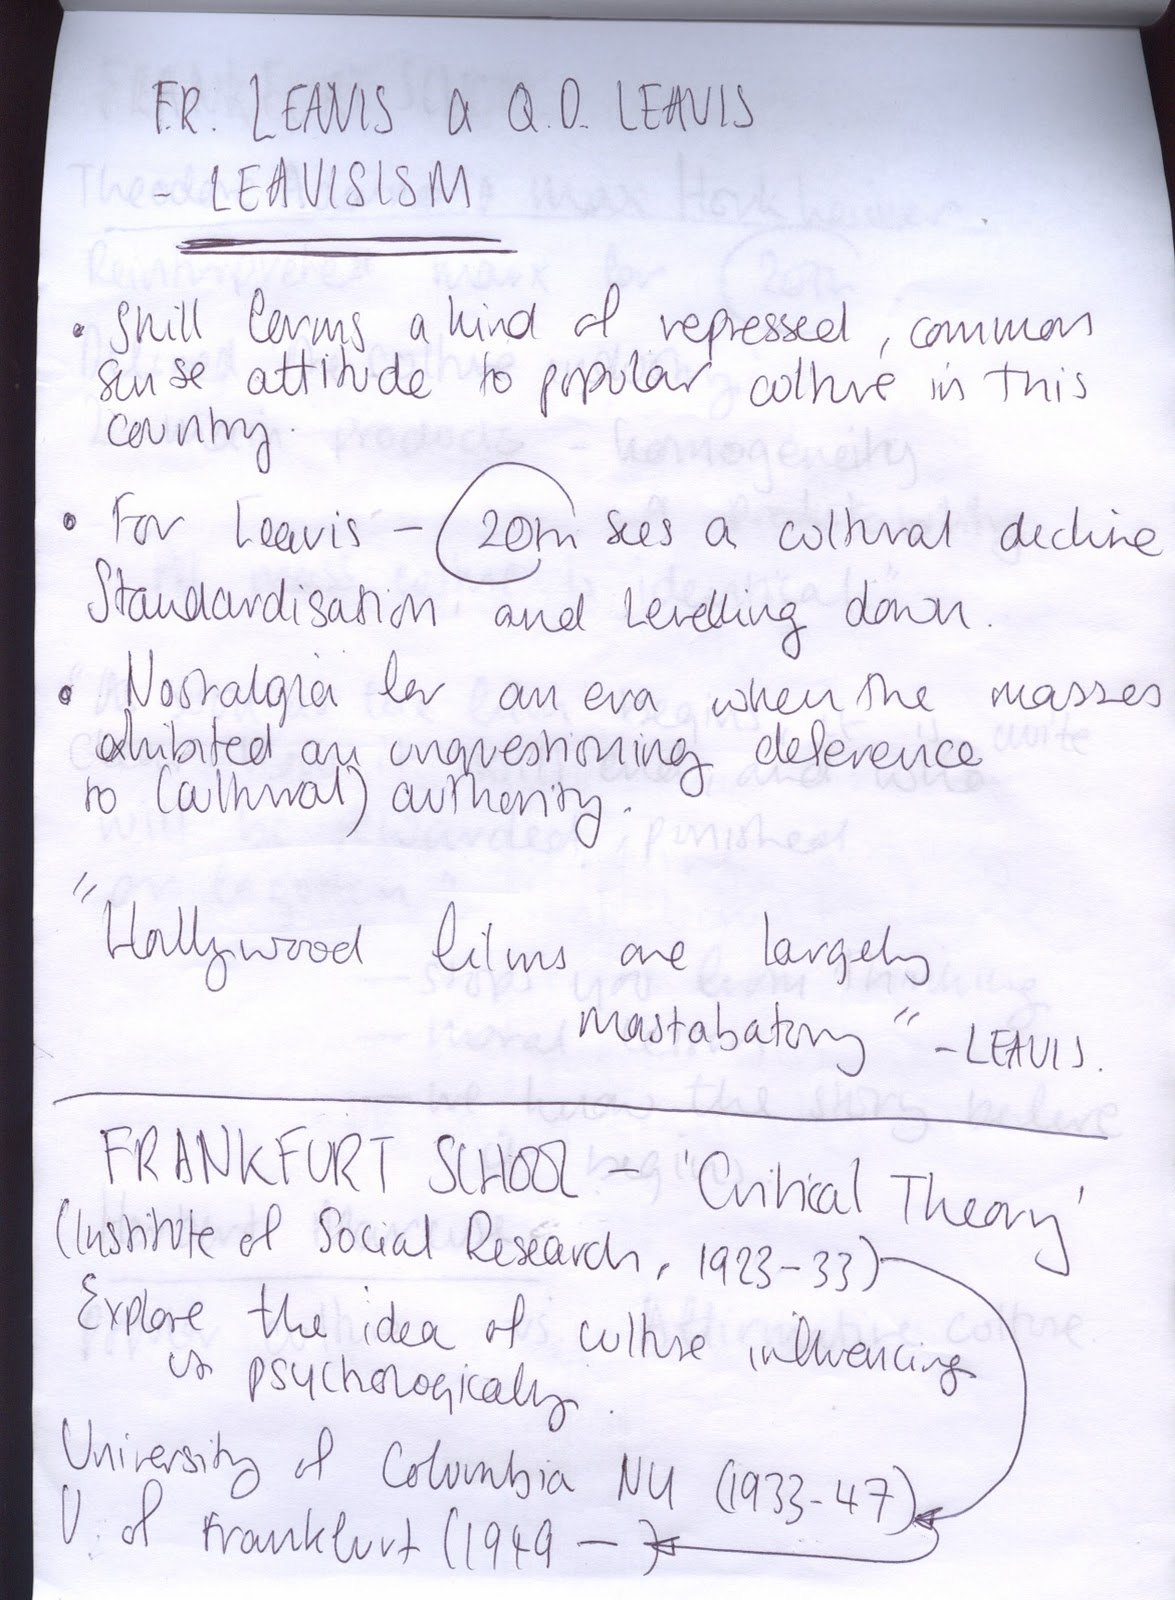 F.R. LEAVIS & Q.D. LEAVIS
- LEAVISISM
• Still forms a kind of repressed, common
sense attitude to popular culture in this
country.
• For Leavis - 20th sees a cultural decline
Standardisation and levelling down.
• Nostalgia for an era when the masses
exhibited an unquestioning deference
to (cultural) authority.
"Hollywood films are largely
mastabatory" - LEAVIS.
FRANKFURT SCHOOL - 'Critical Theory'
(Institute of Social Research, 1923-33)
Explore the idea of culture influencing
us psychologically.
University of Columbia NY (1933-47)
U. of Frankfurt (1949 - )